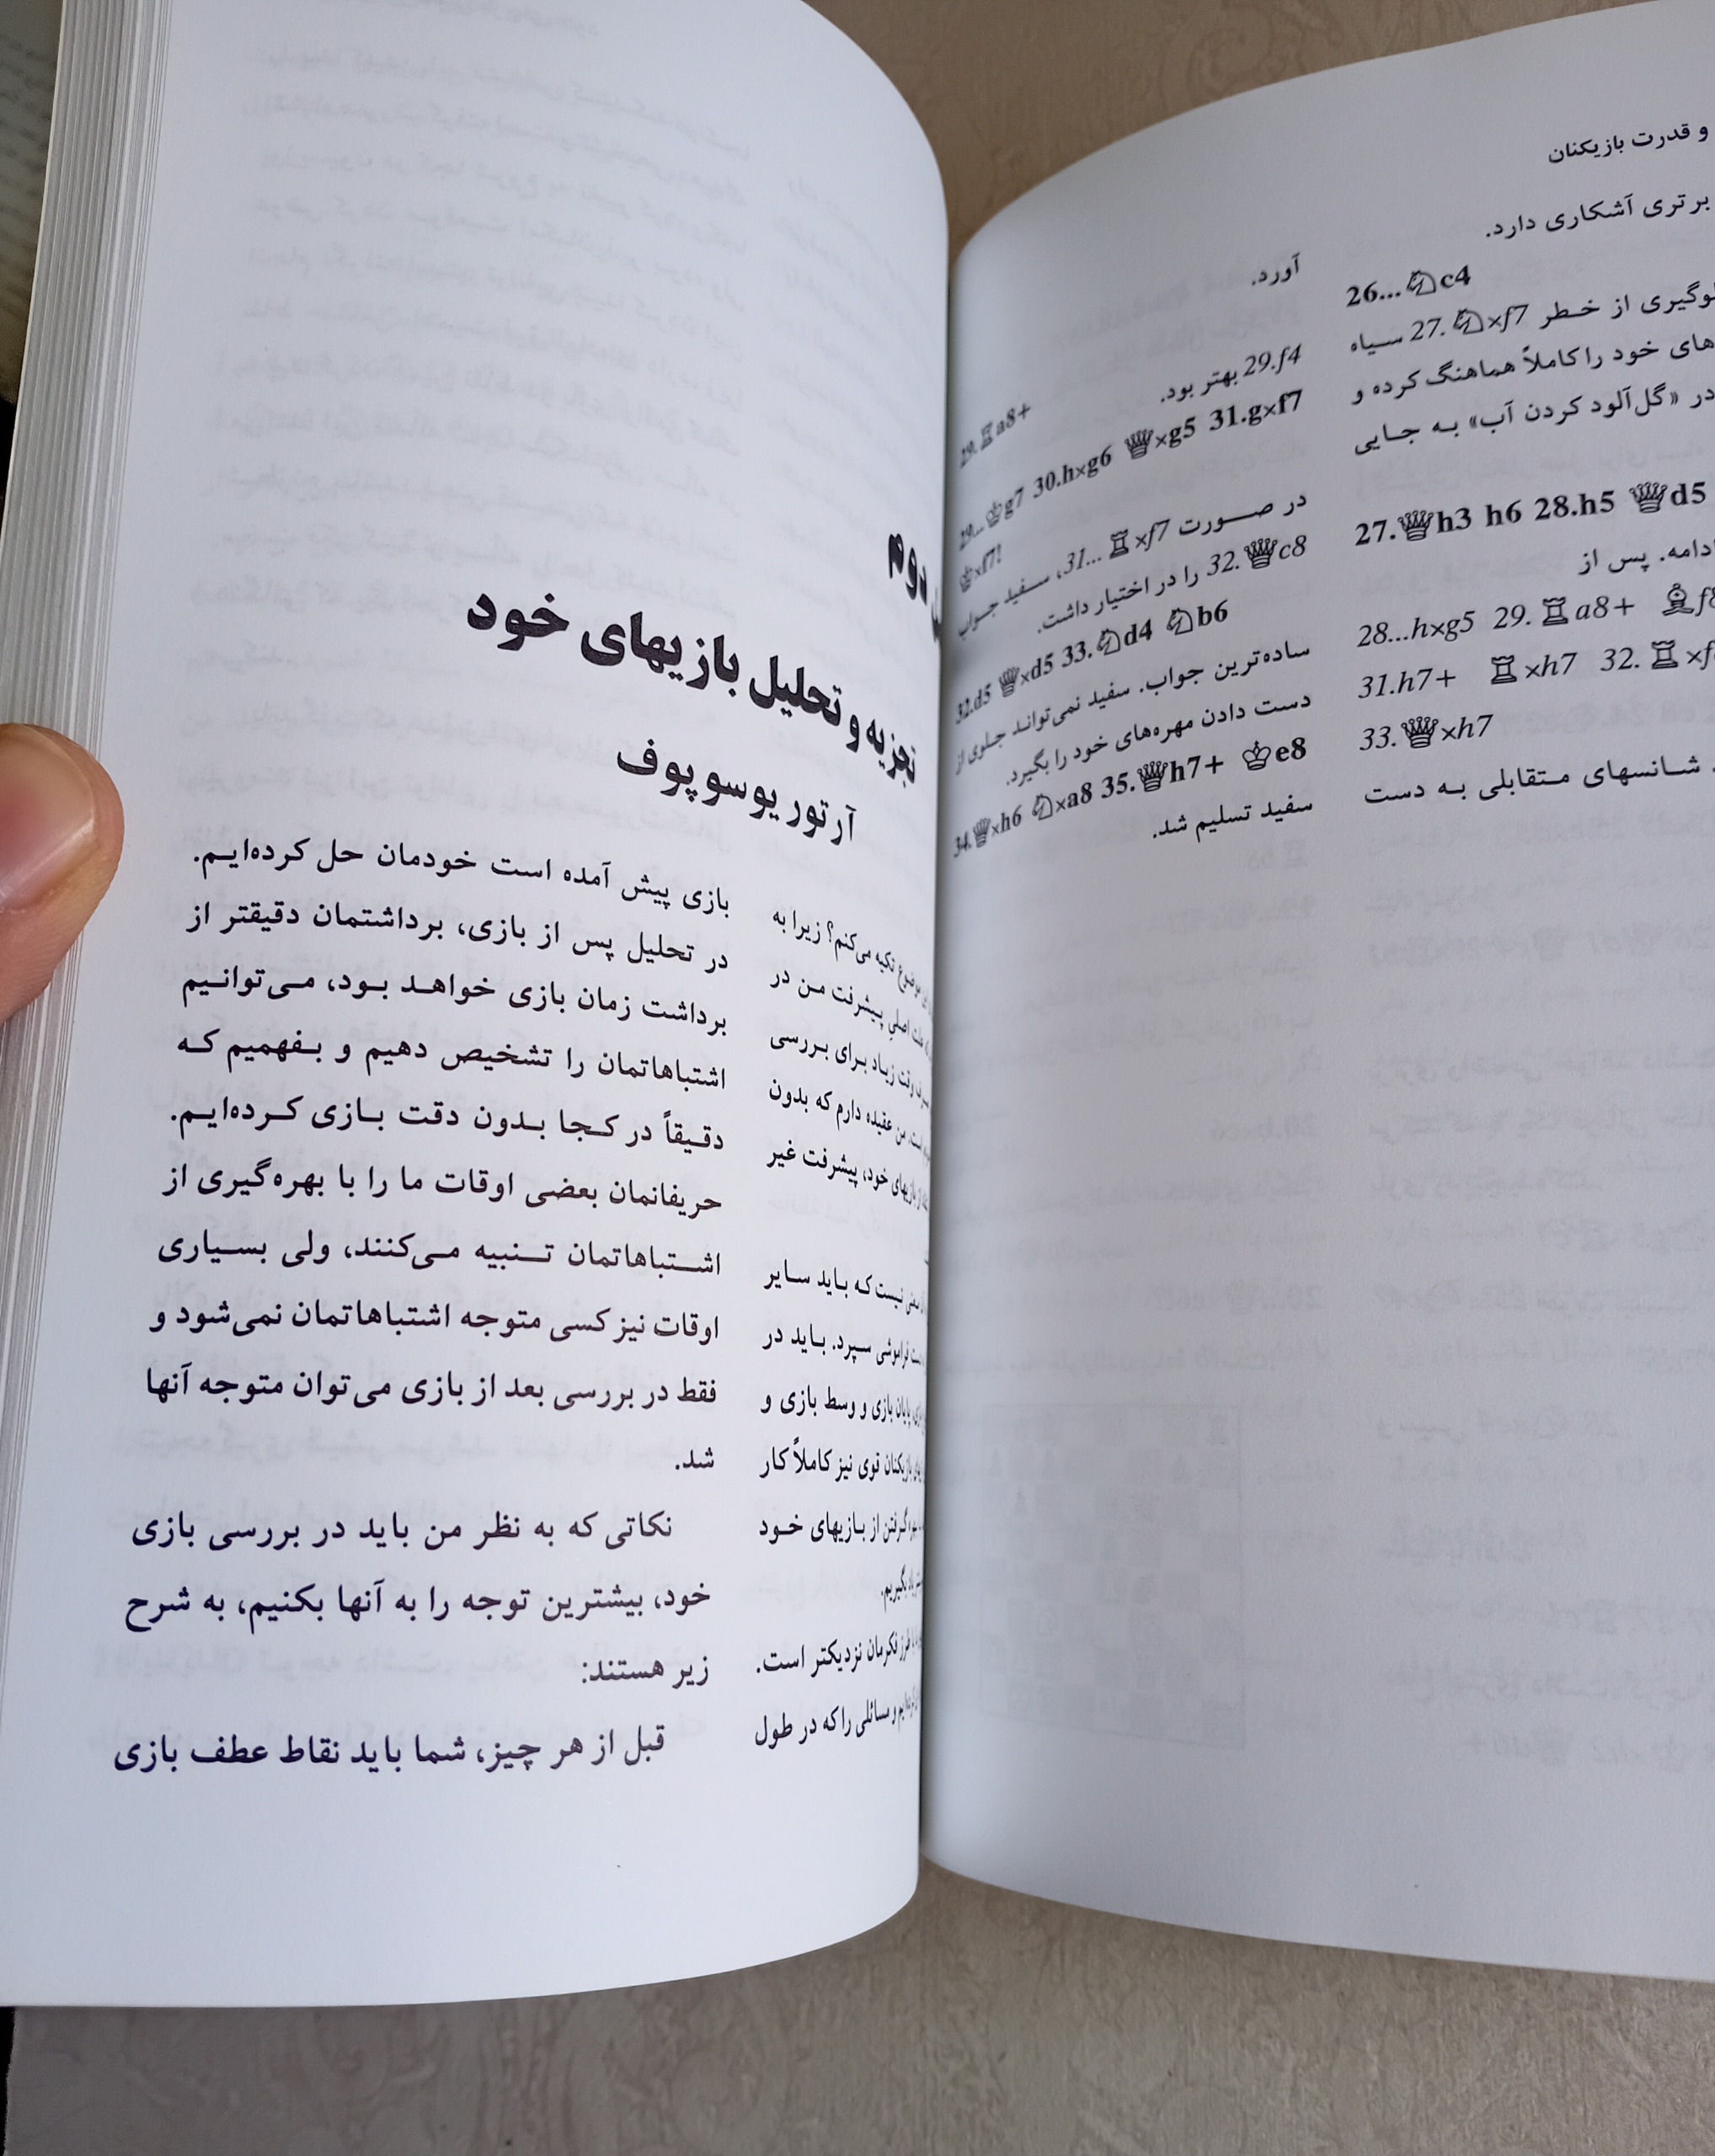 و قدرت بازیکنان
برتری آشکاری دارد.
26...♘c4
لوگیری از خـطر 27.♘×f7 سـیاه
های خود را کاملاً هماهنگ کرده و
در «گل‌آلود کردن آب» بـه جـایی
27.♕h3 h6 28.h5 ♕d5
ادامه. پس از
28...h×g5 29.♖a8+ ♗f8
31.h7+ ♖×h7 32.♖×f
33.♕×h7
شـانسهای مـتقابلی بـه دست
آورد.
29.f4 بهتر بود.
29.♖a8+
29...♔g7 30.h×g6 ♕×g5 31.g×f7
♔×f7!
در صـــورت 31...♖×f7، سـفید جـواب
32.♕c8 را در اختیار داشت.
32.d5 ♕×d5 33.♘d4 ♘b6
ساده‌ترین جواب. سفید نمی‌تواند جلوی از
دست دادن مهره‌های خود را بگیرد.
34.♕×h6 ♘×a8 35.♕h7+ ♔e8
سفید تسلیم شد.
دوم
تجزیه و تحلیل بازیهای خود
آرتور یوسوپوف
موضوع تکیه می‌کنم؟ زیرا به
علت اصلی پـیشرفت مـن در
وقت زیـاد بـرای بـررسی
است. من عقیده دارم که بدون
از بازیهای خود، پیشرفت غیر
معنی نیست که بـاید سـایر
فراموشی سـپرد. بـاید در
پایان بازی و وسط بازی و
بازیکنان قوی نیز کاملاً کار
گـرفتن از بـازیهای خـود
بگیریم.
طرز فکرمان نزدیکتر است.
و مسائلی را که در طول
بازی پیش آمده است خودمان حل کرده‌ایـم.
در تحلیل پس از بازی، برداشتمان دقیقتر از
برداشت زمان بازی خواهـد بـود، مـی‌توانـیم
اشتباهاتمان را تشخیص دهیم و بـفهمیم کـه
دقـیقاً در کـجا بـدون دقت بـازی کـرده‌ایـم.
حریفانمان بعضی اوقات ما را با بهره‌گیری از
اشـــتباهاتمان تـــنبیه مـی‌کنند، ولی بسـیاری
اوقات نیز کسی متوجه اشتباهاتمان نمی‌شود و
فقط در بررسی بعد از بازی می‌توان متوجه آنها
شد.
نکاتی که به نظر من باید در بررسی بازی
خود، بیشترین توجه را به آنها بکنیم، به شرح
زیر هستند:
قبل از هر چیز، شما باید نقاط عطف بازی